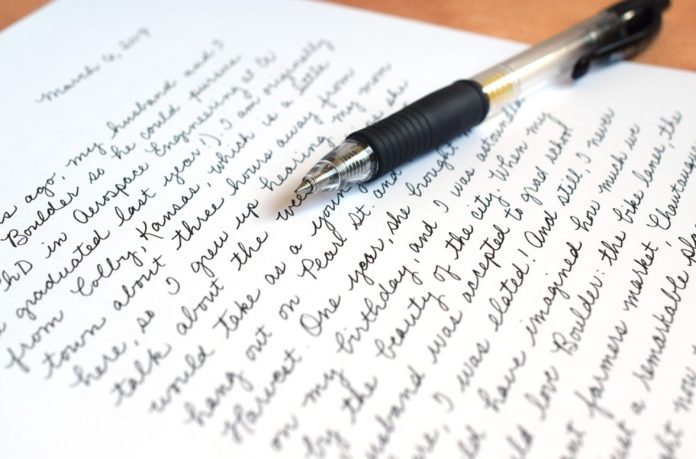 March 6, 2019
s ago, my husband and I
Boulder so he could pursue
PhD in Aerospace Engineering at CU
graduated last year!). I am originally
from Colby, Kansas, which is a little
town about three hours away from
here, so I grew up hearing my mom
talk about the wee she
would take as a young
hang out on Pearl St. and
Harvest. One year, she brought
on my birthday, and I was astounded
by the beauty of the city. When my
husband was accepted to grad school
re, I was elated! And still I never
ld have imagined how much we
ld love Boulder: the bike lanes, the
at farmers market, Chautau
just a remarkable pla
ght now